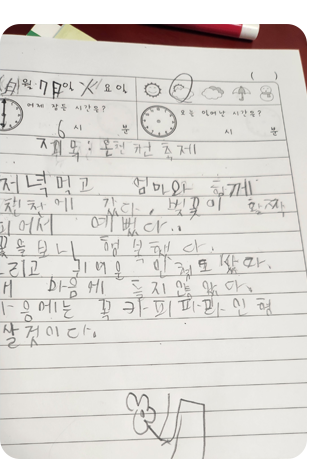 월 7
어제 잠든 시간은?
오늘 일어난 시간은?
6시 분
시 분
제목: 온천천 축제
저녁먹고 엄마와 함께
천천에 갔다. 벚꽃이 활짝
피어서 예뻤다..
꽃을보니 행복했다.
그리고 귀여운 인형도 샀다.
마음에 들지 않았다.
다음에는 꼭 카피파라인형
살것이다.